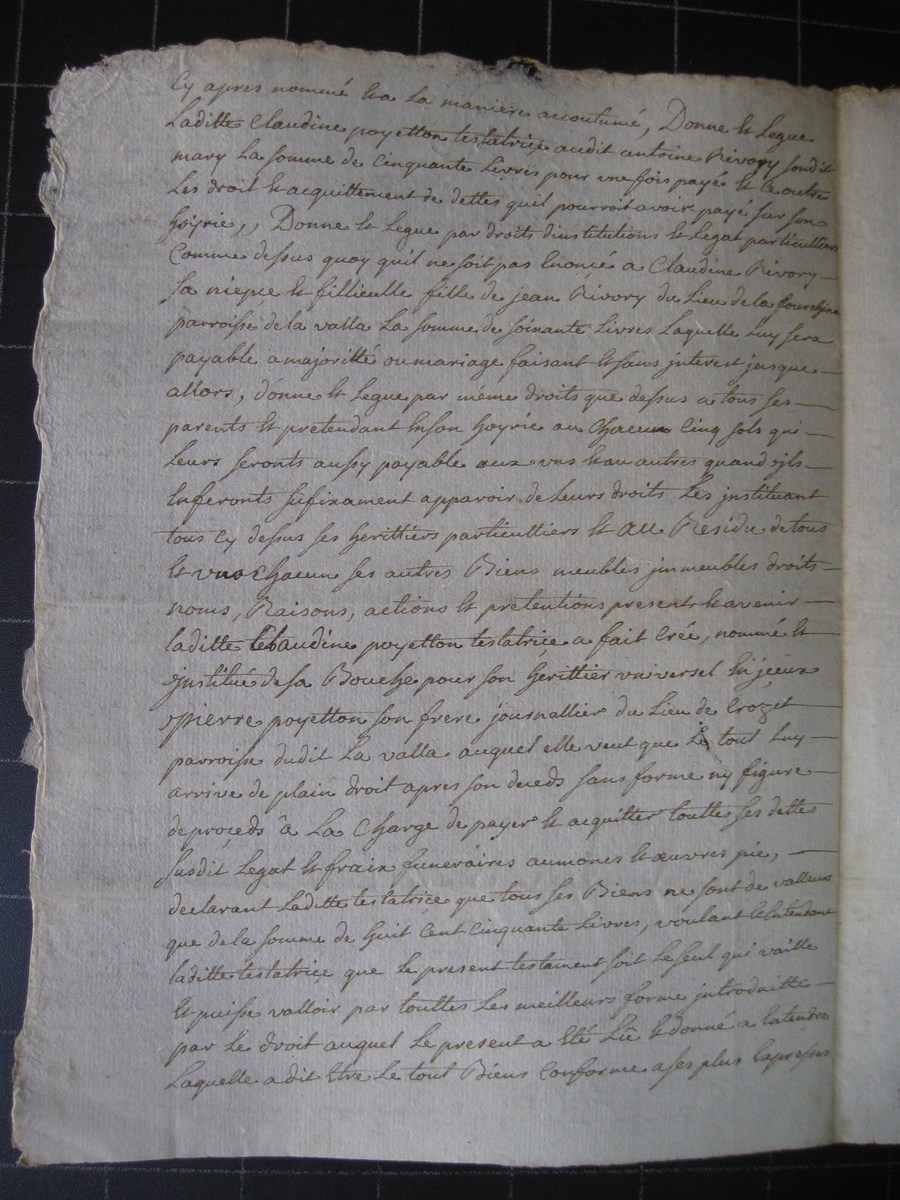 Cy apres nommé et a la maniere acoutumé, Donne et Legue
Laditte Claudine poyetton testatrice audit antoine Rivory sondit
mary La somme de Cinquante Livres pour vne fois payé et ce outre
Les droit et acquittement de dettes quil pourroit avoir payé sur son
hoyrie,, Donne et Legue par droits d'institutions et Legat particulliers
Comme dessus quoy quil ne soit pas Enoncé a Claudine Rivory
sa niepce et fillieulle fille de jean Rivory du Lieu de la
parroisse de la valla La somme de soixante Livres Laquelle Luy sera
payable a majoritté ou mariage faisant et sans jnterest jusque
allors, donne et Legue par même droits que dessus a tous ses
parents et pretendant En son hoyrie au Chacun Cinq sols qui
Leurs seronts aussy payable aux vns et au autres quand jls
Enferonts sufixament apparoir de Leurs droits Les jnstituant
tous Cy dessus ses herittiers particulliers et au Residu de tous
et vns Chacun ses autres Biens meubles jmmeubles droits
noms, Raisons, actions et pretentions presents et avenir
laditte Claudine poyetton testatrice a fait Crée, nommé et
jnstitué de sa Bouche pour son herittier vniversel
pierre poyetton son frere journallier du Lieu de Crozet
parroisse dudit La valla auquel elle veut que le tout Luy
arrive de plain droit apres son deceds sans forme ny figure
de proceds a La Charge de payer et acquitter touttes ses dettes
susdit Legat et fraix funeraires aumones et œuvres pie,
declarant Laditte testatrice que tous ses Biens ne sont de valleur
que de la somme de huit Cent Cinquante Livres, voulant et Entendant
laditte testatrice que le present testament soit Le seul qui vaille
et puisse valloir par touttes Les meilleurs forme jntroduitte
par Le droit auquel Le present a Eté Lû et donné a Entendre
Laquelle a dit Etre Le tout Biens Conforme a ses plus Expresses